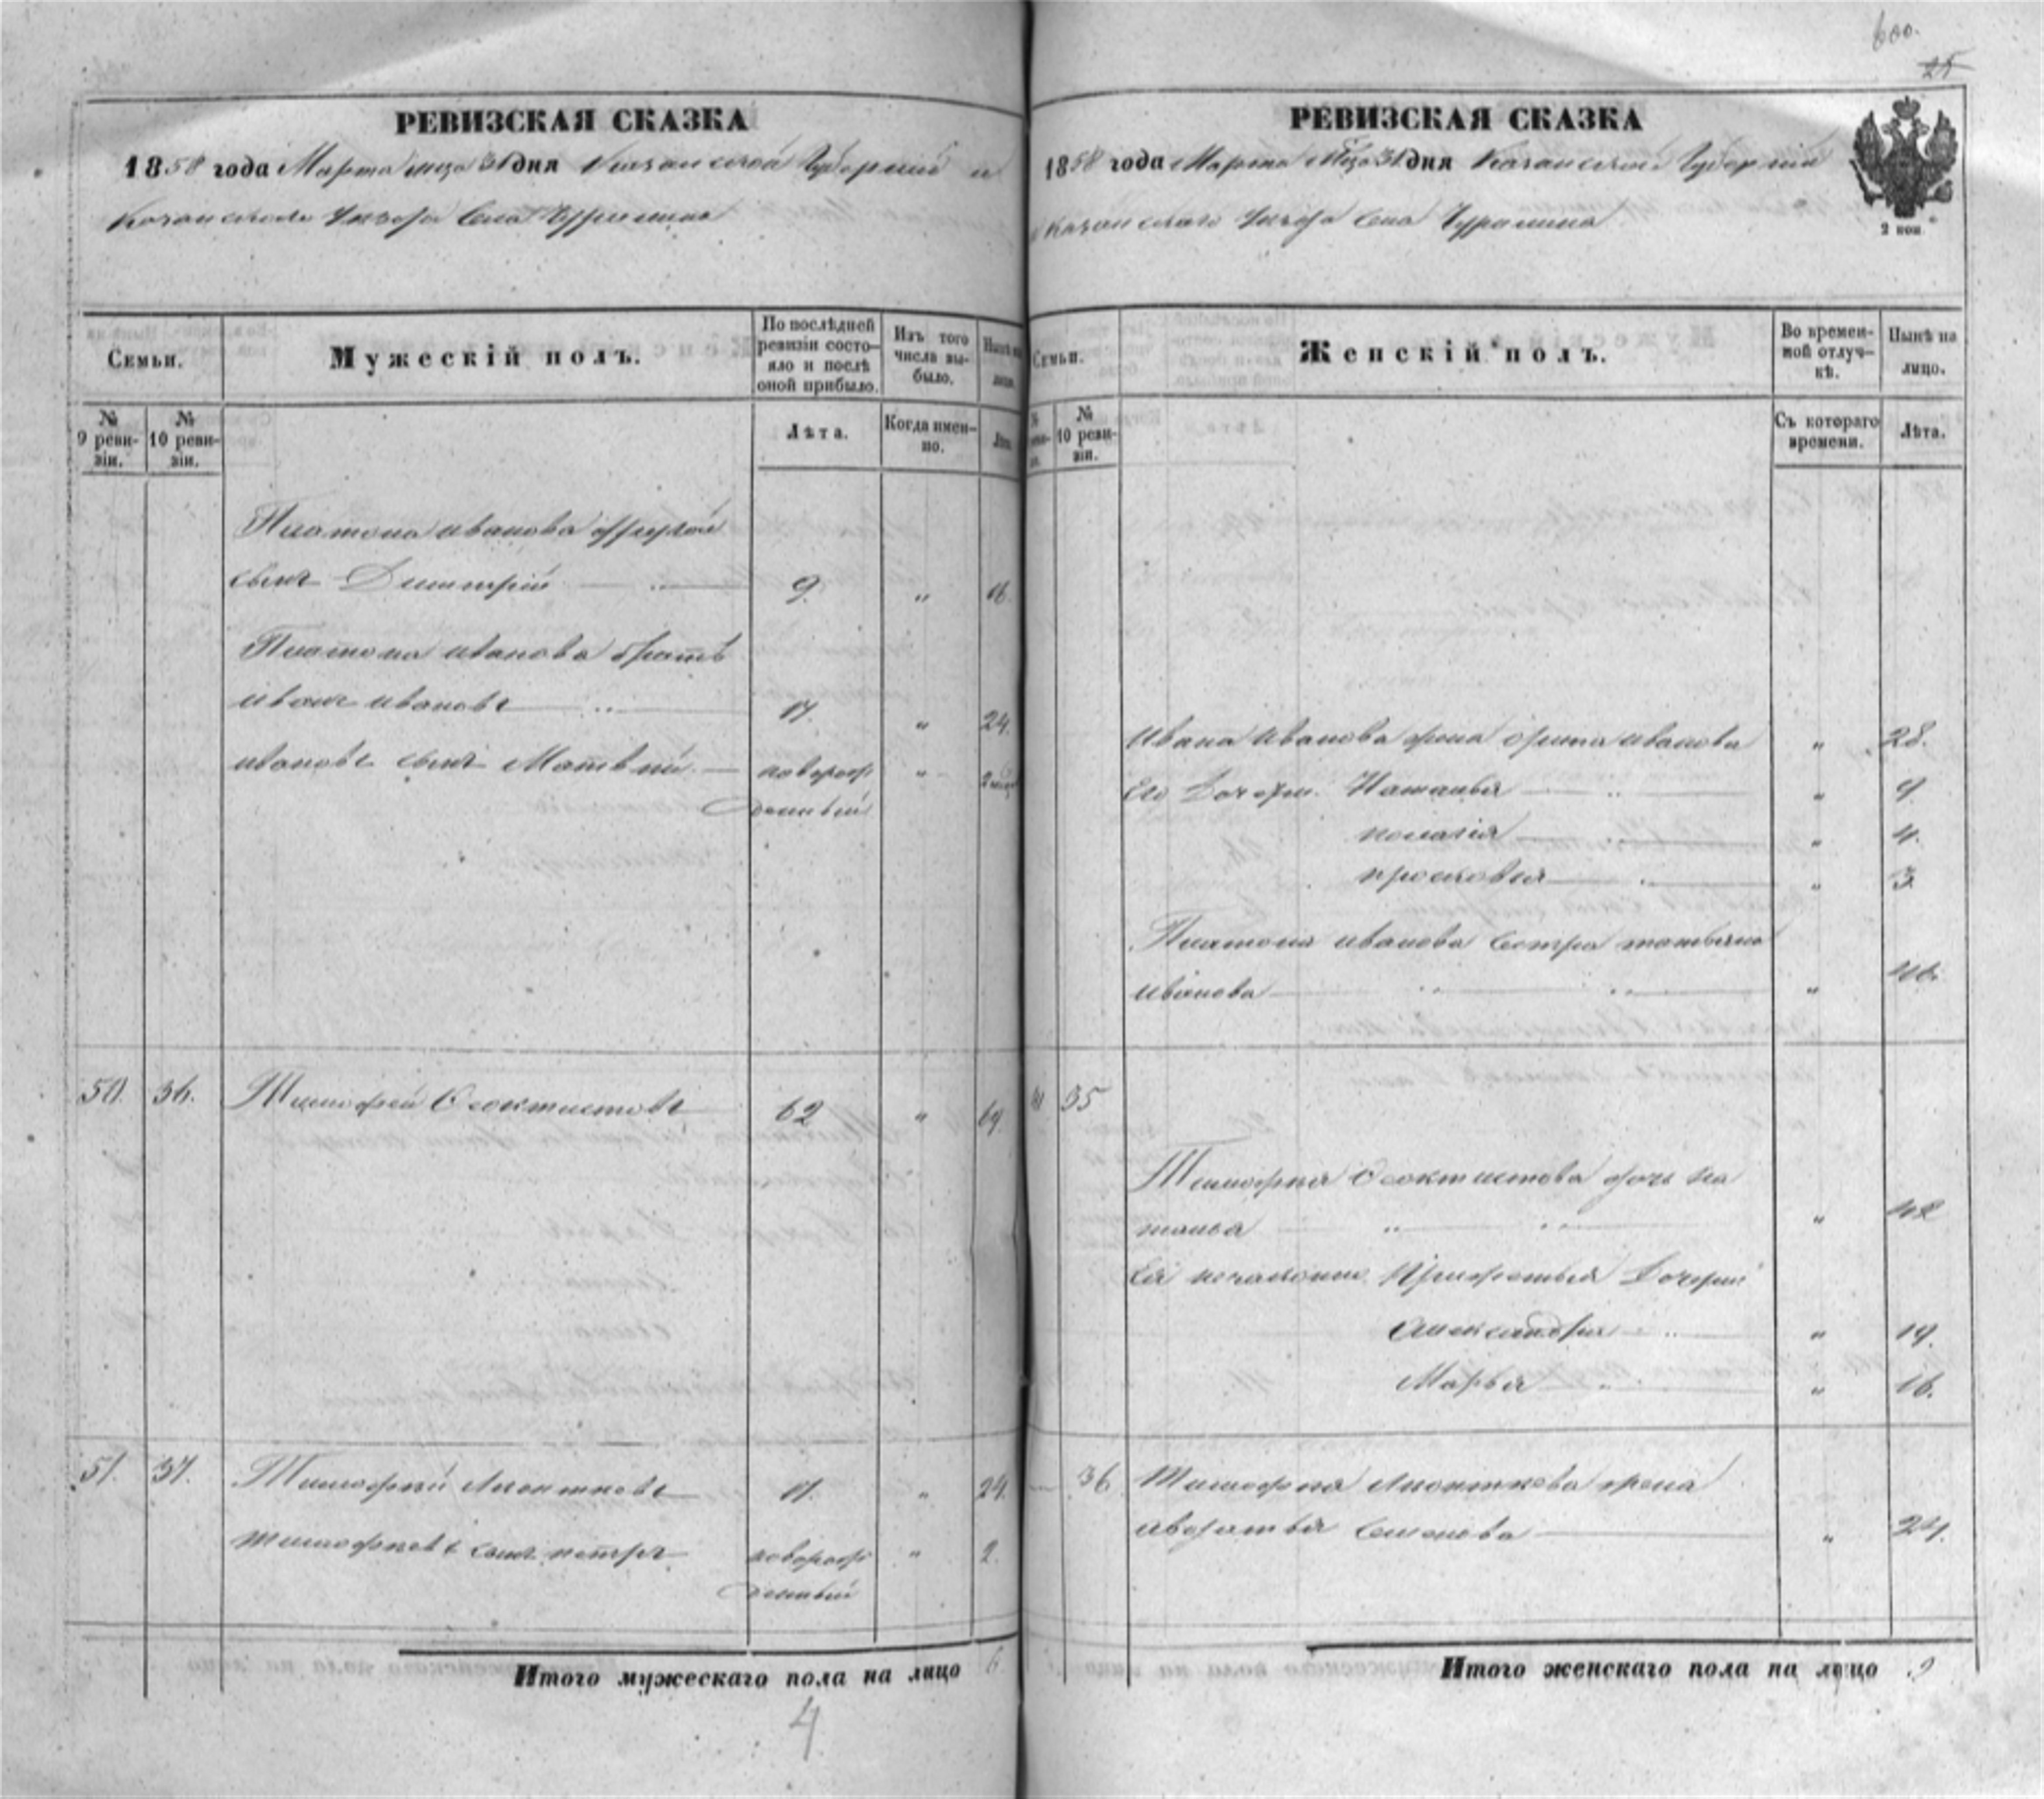 600.
25
РЕВИЗСКАЯ СКАЗКА
1858 года Марта мца 31 дня Казанской Губернии и
Казанскаго Уезда Села Чурилина
Семьи.
Мужескій полъ.
По послѣдней
ревизіи состо-
яло и послѣ
оной прибыло.
Изъ того
числа вы-
было.
Нынѣ на
лицо.
№
9 реви-
зіи.
№
10 реви-
зіи.
Лѣта.
Когда имен-
но.
Лѣта
Платона иванова другой
сынъ Димитрій 9. " 16.
Платона иванова братъ
иванъ ивановъ 17. " 24.
ивановъ сынъ Матвѣй новорож "
денный
50. 36. Тимофей Феоктистовъ 62 " 69.
51. 37. Тимофей Леонтьевъ 17. " 24.
тимофеевъ сынъ петръ новорож " 2.
денный
Итого мужескаго пола на лицо 6
4
РЕВИЗСКАЯ СКАЗКА
1858 года Марта Мца 31 дня Казанской Губерніи
Казанскаго Уезда Села Чурилина
2 коп.
Семьи.
Женскій полъ.
Во времен-
ной отлуч-
кѣ.
Нынѣ на
лицо.
№
10 реви-
зіи.
Съ котораго
времени.
Лѣта.
Ивана Иванова жена орина иванова " 28.
Его Дочери. Наталья " 9.
пелагія " 4.
прасковья " 3
Платона иванова Сестра татьяна
иванова "
35
Тимофея Феоктистова дочь На
талья " 42
Ея незаконно Прижитыя Дочери
Александра " 19.
Марья " 16.
36 Тимофея Леонтьева жена
авдотья Семенова " 24.
Итого женскаго пола на лицо 9